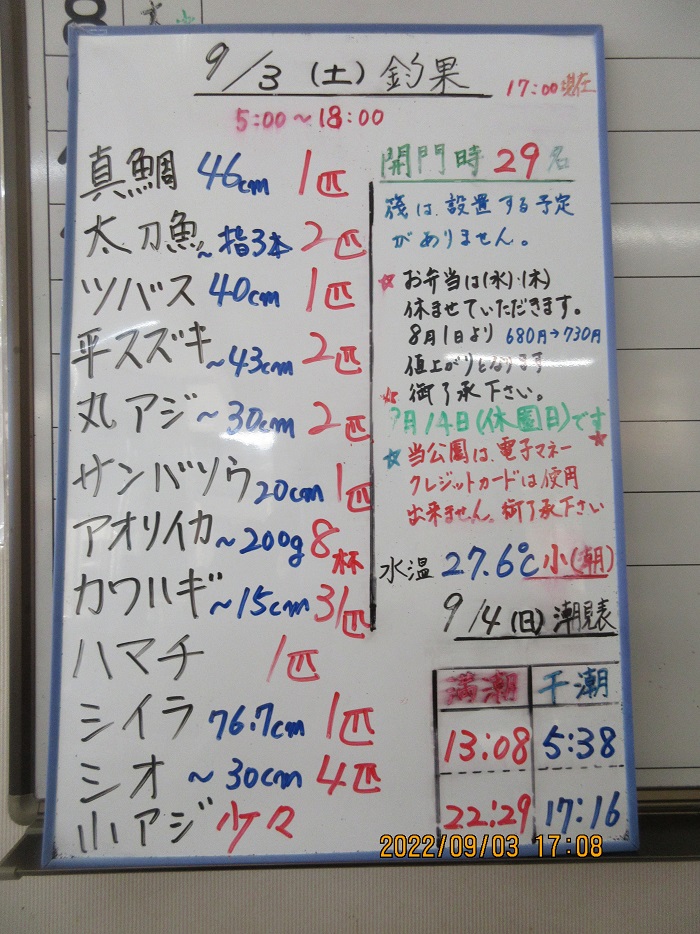 9/3(土)釣果
17:00現在
5:00〜18:00
真鯛 46cm 1匹
太刀魚 〜指3本 2匹
ツバス 40cm 1匹
平スズキ 〜43cm 2匹
丸アジ 〜30cm 2匹
サンバソウ 20cm 1匹
アオリイカ 〜200g 8杯
カワハギ 〜15cm 3匹
ハマチ 1匹
シイラ 76.7cm 1匹
シオ 〜30cm 4匹
小アジ 少々
開門時 29名
筏は、設置する予定
がありません。
☆お弁当は(水)・(木)
休ませていただきます。
8月1日より 680円→730円
値上がりとなります
☆御了承下さい。
9月14日(休園日)です
☆当公園は、電子マネー☆
クレジットカードは使用
出来ません。御了承下さい
水温 27.6℃ 小(朝)
9/4(日)潮見表
満潮 干潮
13:08 5:38
22:29 17:16
2022/09/03 17:08